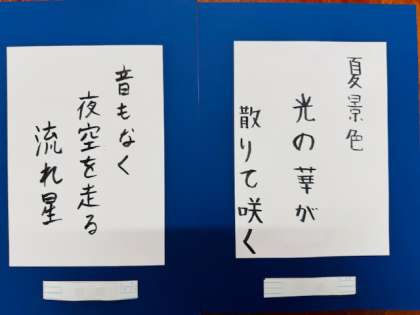 夏景色
光の華が
散りて咲く
音もなく
夜空を走る
流れ星